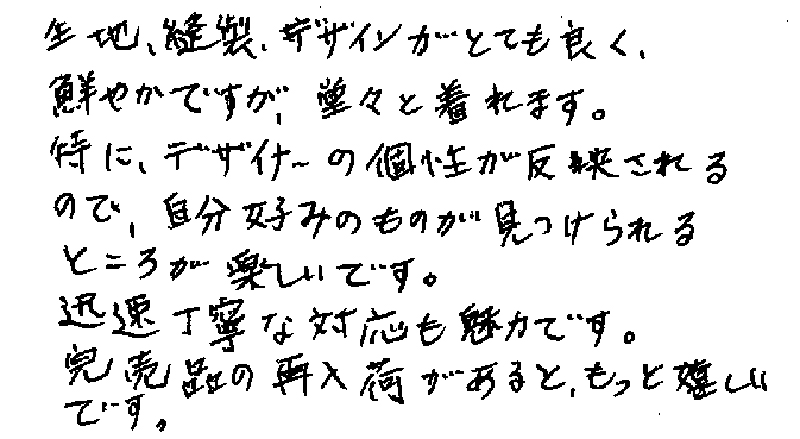 生地、縫製、デザインがとても良く、
鮮やかですが、堂々と着れます。
特に、デザイナーの個性が反映される
ので、自分好みのものが見つけられる
ところが楽しいです。
迅速丁寧な対応も魅力です。
完売品の再入荷があると、もっと嬉しい
です。